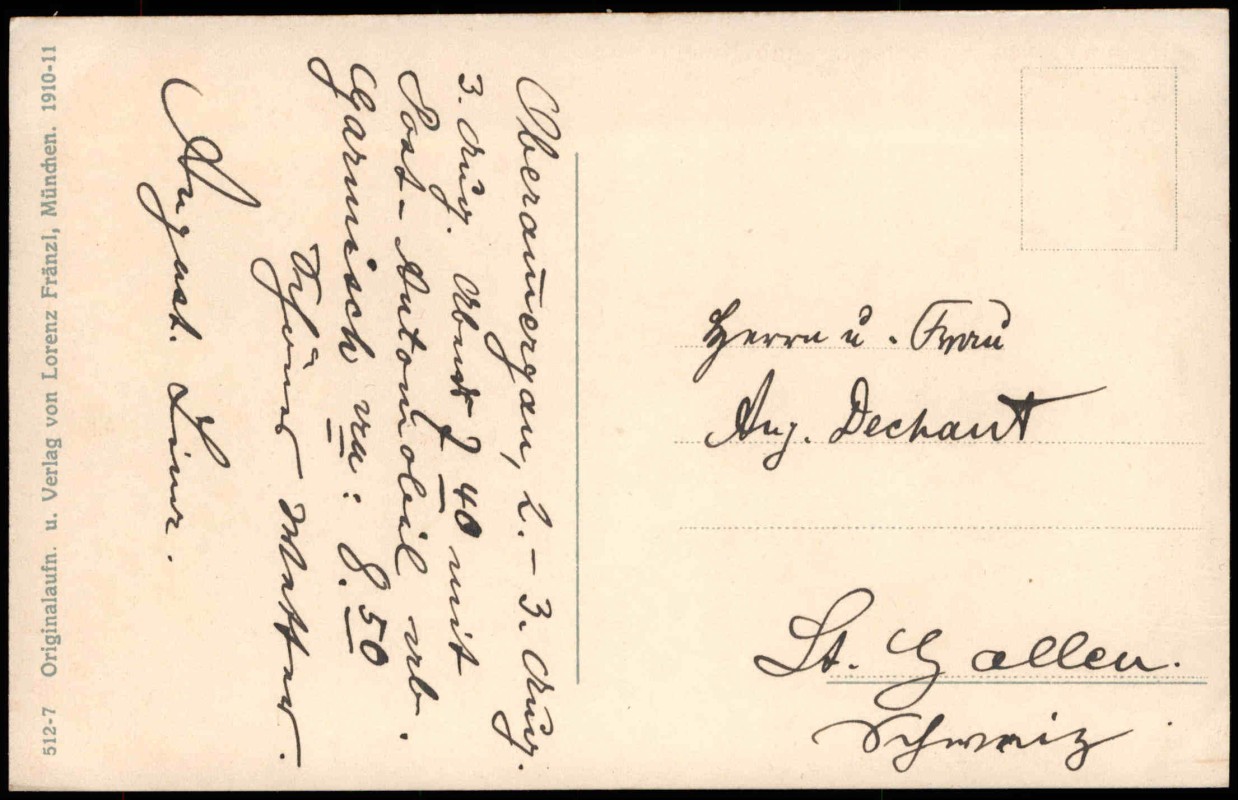 Oberammergau, 2. - 3. Aug.
3. Aug. Abends 7 40 mit
Post-Automobil ab.
Garmisch an: 8.50
Schönes Wetter.
August.
Herrn u. Frau
Aug. Dechant
St. Gallen.
Schweiz
512-7 Originalaufn. u. Verlag von Lorenz Fränzl, München. 1910-11